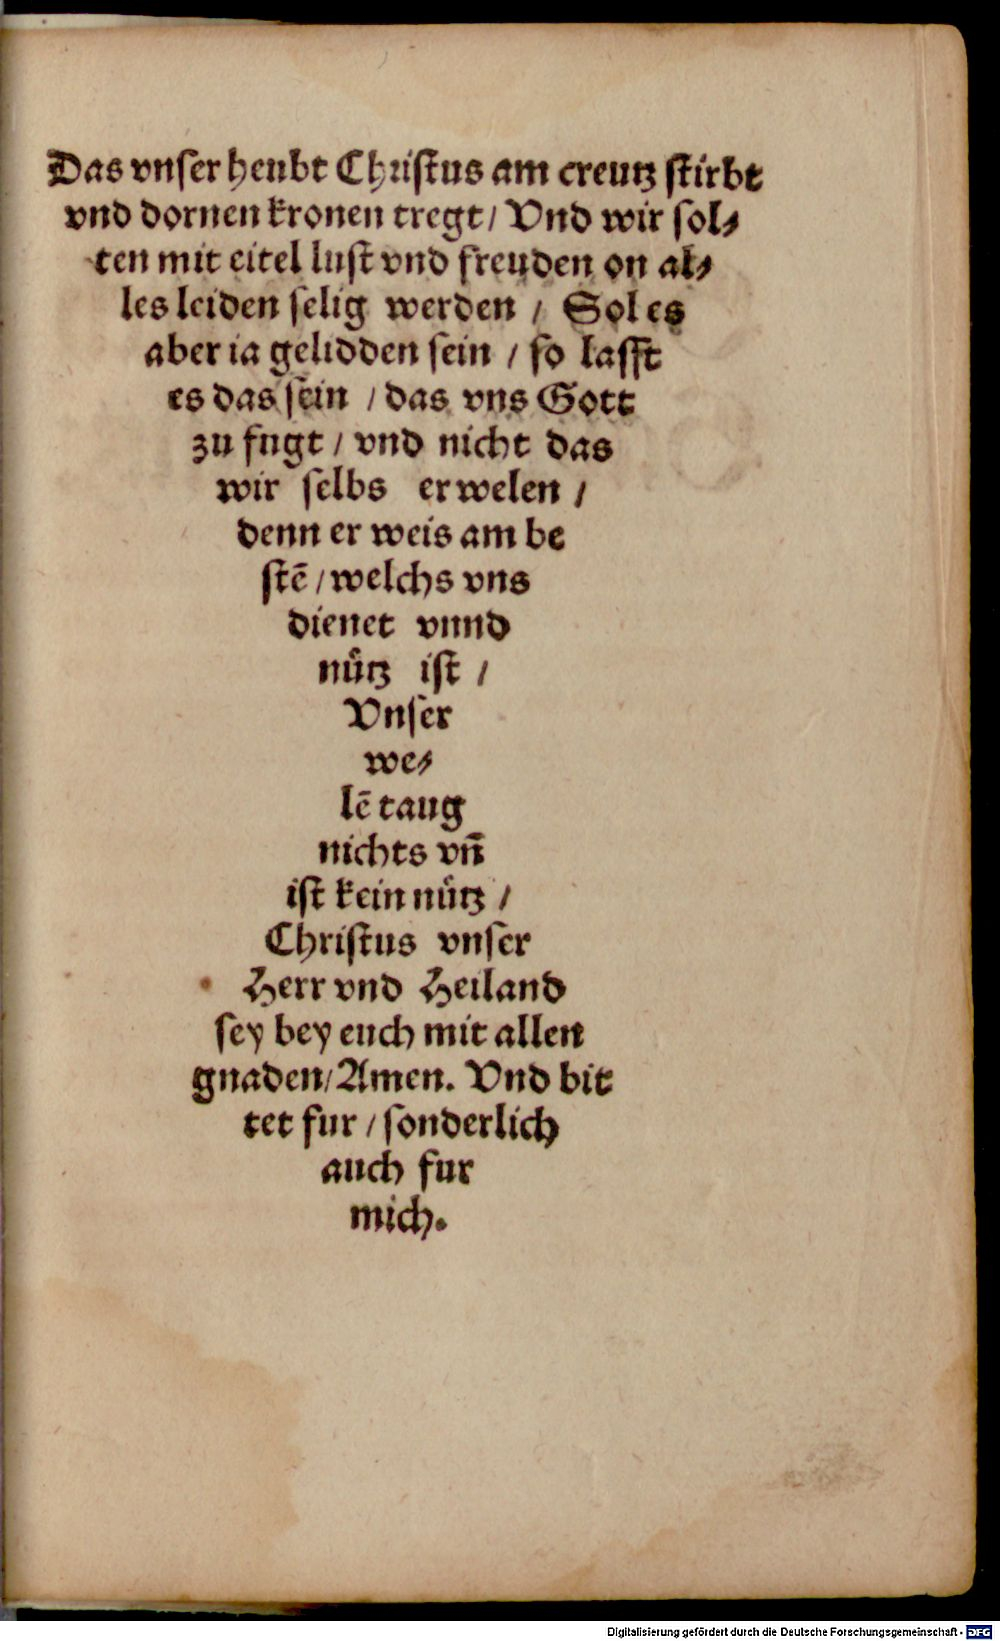 Das vnser heubt Christus am creutz stirbt
vnd dornen kronen tregt / Vnd wir sol⸗
ten mit eitel lust vnd freuden on al⸗
les leiden selig werden / Sol es
aber ia gelidden sein / so lasst
es das sein / das vns Gott
zu fugt / vnd nicht das
wir selbs erwelen /
denn er weis am be
stē / welchs vns
dienet vnnd
nütz ist /
Vnser
we⸗
lē taug
nichts vn̄
ist kein nütz /
Christus vnser
Herr vnd Heiland
sey bey euch mit allen
gnaden / Amen. Vnd bit
tet fur / sonderlich
auch fur
mich.
Digitalisierung gefördert durch die Deutsche Forschungsgemeinschaft - DFG